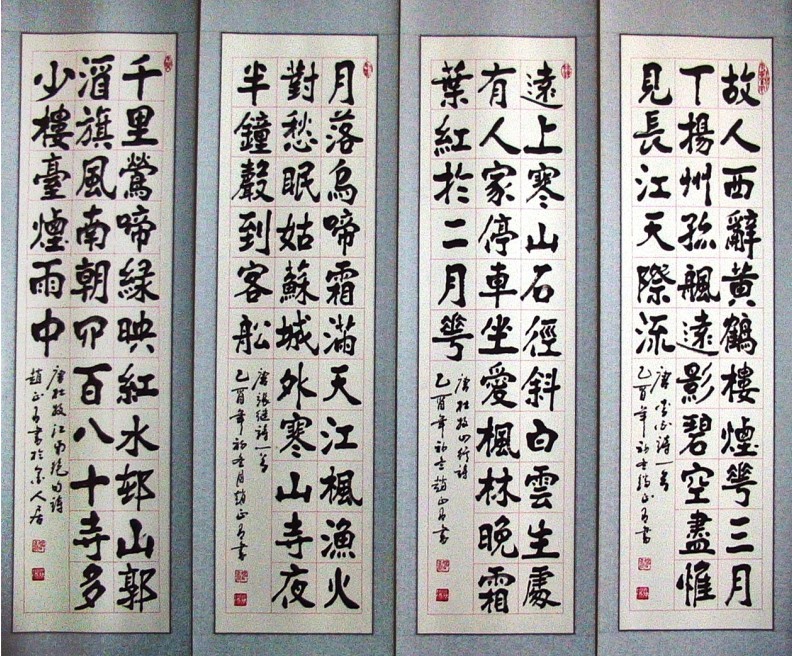 故人西辭黃鶴樓煙華三月
下揚州孤帆遠影碧空盡惟
見長江天際流
唐李白詩一首
乙酉年初冬趙正書
遠上寒山石徑斜白雲生處
有人家停車坐愛楓林晚霜
葉紅於二月華
唐杜牧山行詩
乙酉年初冬趙正書
月落烏啼霜滿天江楓漁火
對愁眠姑蘇城外寒山寺夜
半鐘聲到客船
唐張繼詩一首
乙酉年初冬月趙正書
千里鶯啼綠映紅水邨山郭
酒旗風南朝四百八十寺多
少樓臺煙雨中
唐杜牧江南絕句詩
趙正書於人居